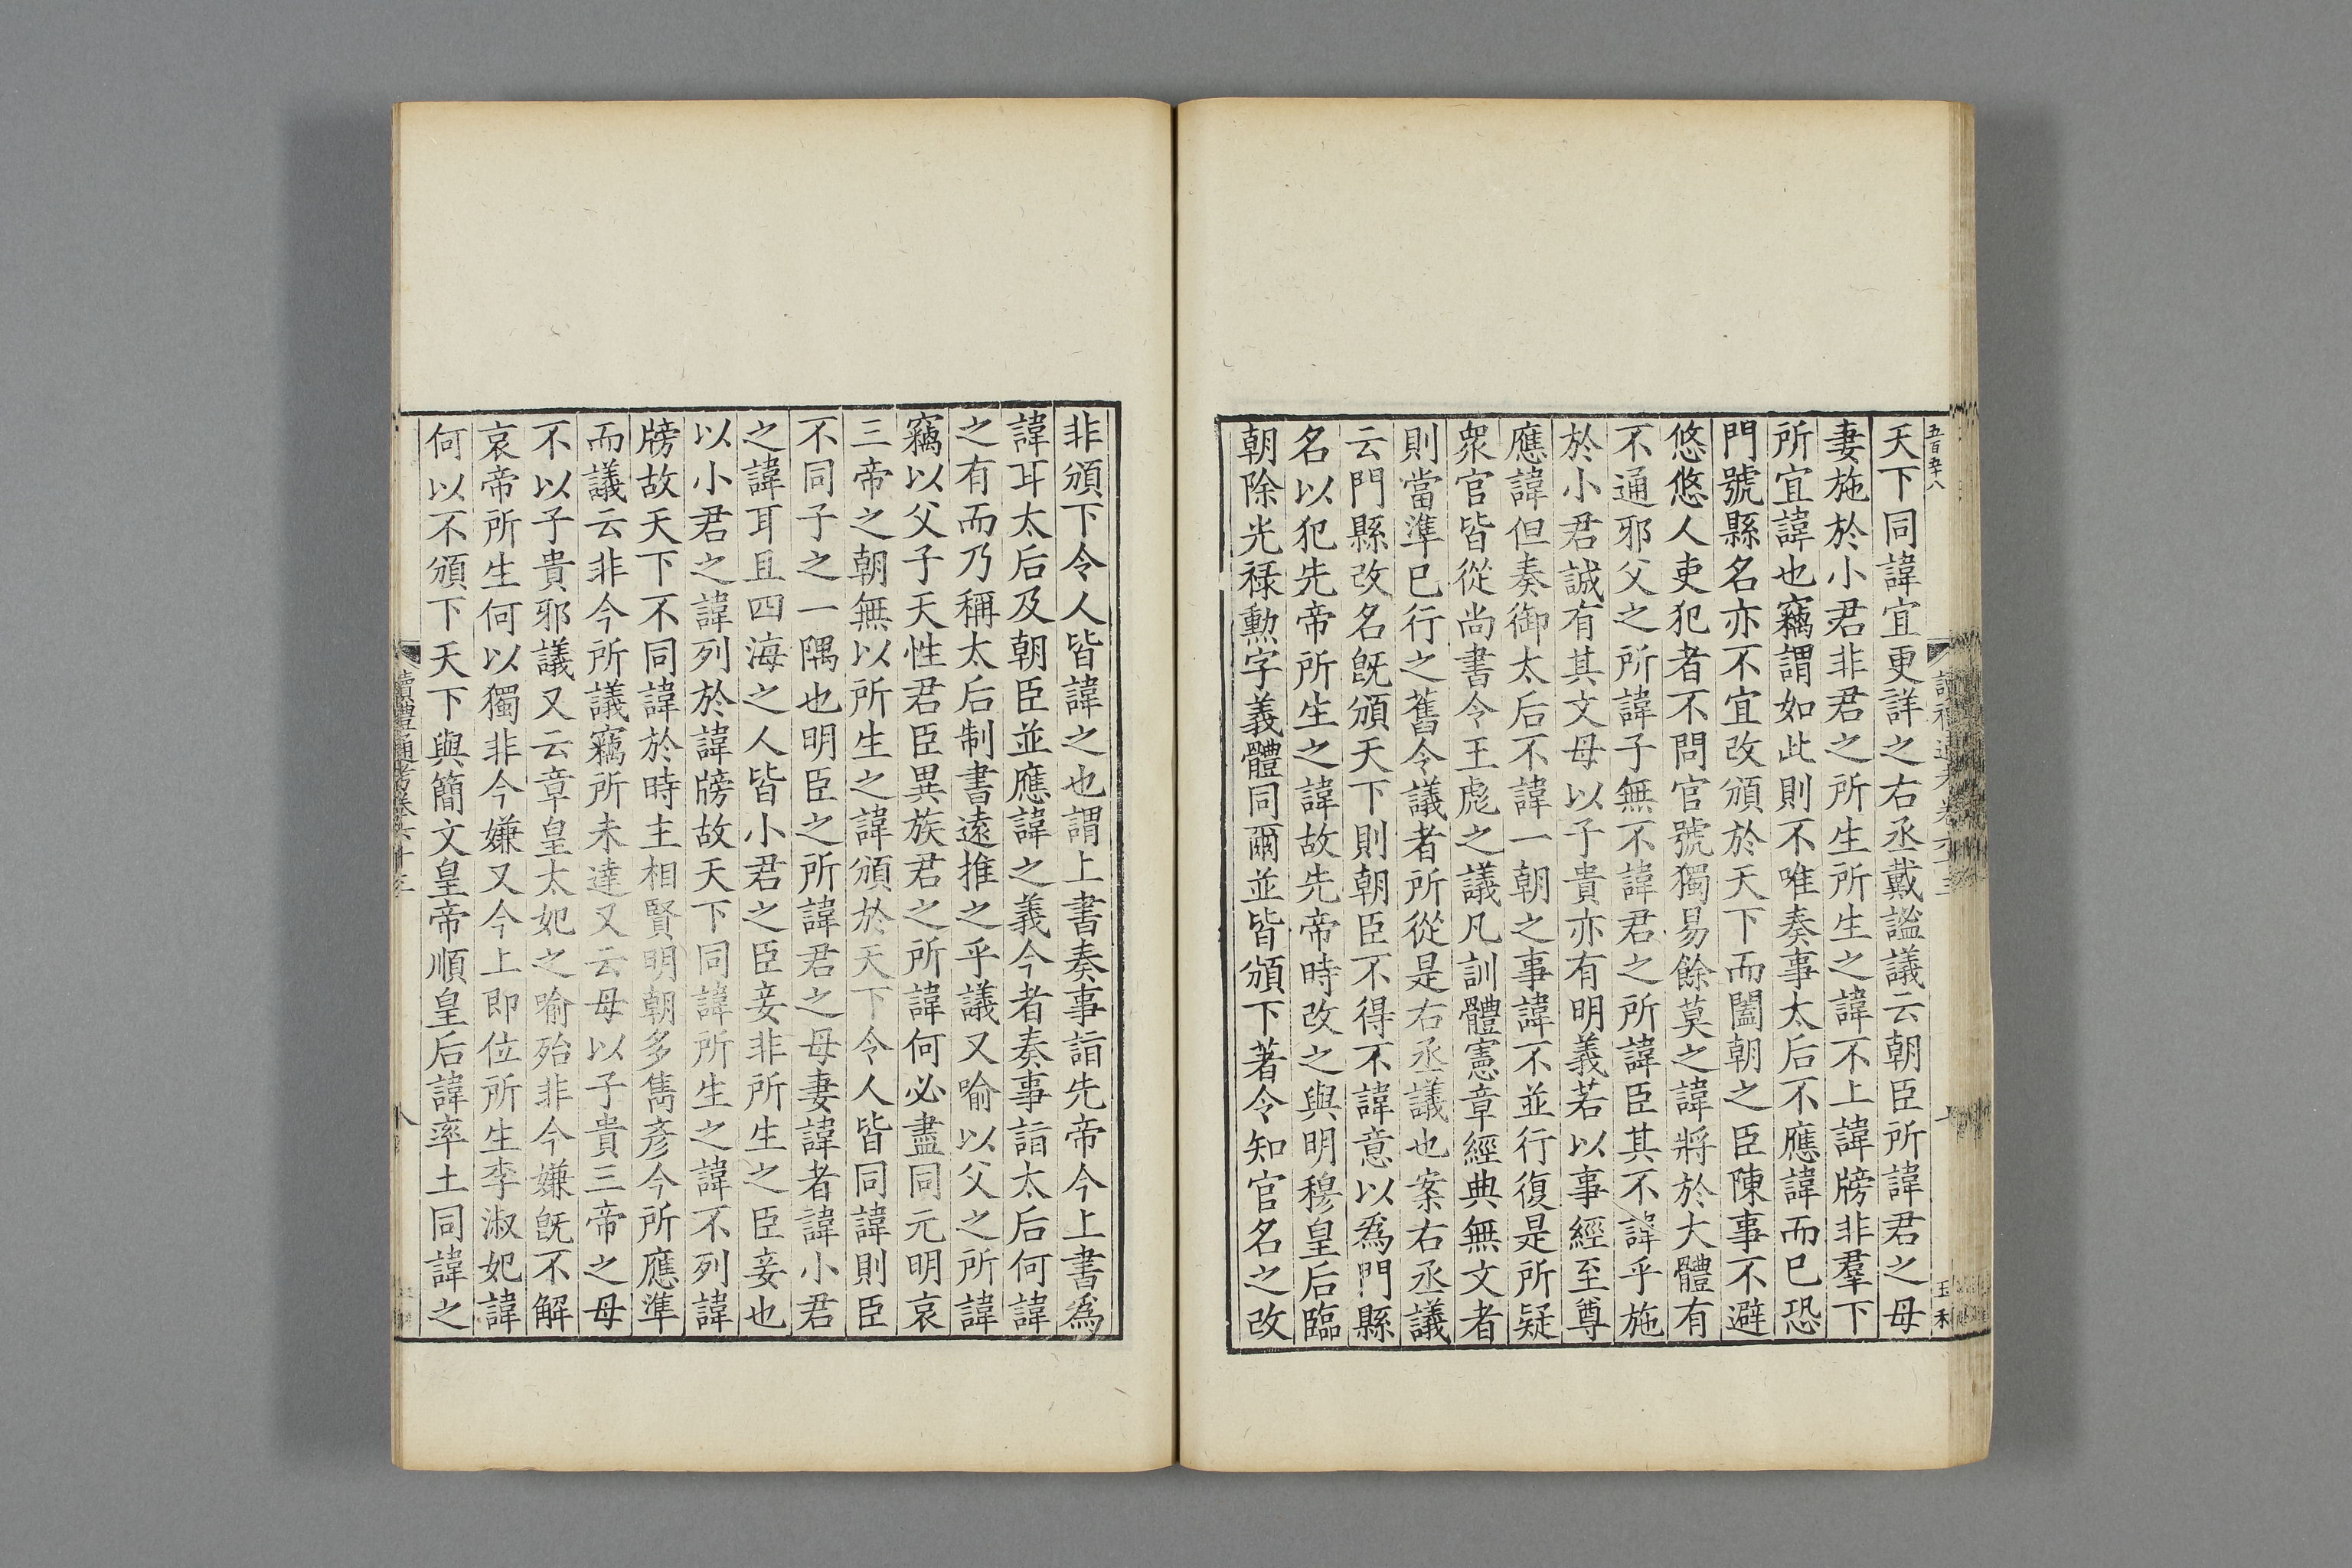 五百五十八
天下同諱宜更詳之右丞戴謐議云朝臣所諱君之母
妻施於小君非君之所生所生之諱不上諱牓非羣下
所宜諱也竊謂如此則不唯奏事太后不應諱而已恐
門號縣名亦不宜改頒於天下而闔朝之臣陳事不避
悠悠人吏犯者不問官號獨易餘莫之諱將於大體有
不通邪父之所諱子無不諱君之所諱臣其不諱乎施
於小君誠有其文母以子貴亦有明義若以事經至尊
應諱但奏御太后不諱一朝之事諱不並行復是所疑
衆官皆從尚書令王彪之議凡訓體憲章經典無文者
則當準已行之舊令議者所從是右丞議也案右丞議
云門縣改名旣頒天下則朝臣不得不諱意以爲門縣
名以犯先帝所生之諱故先帝時改之與明穆皇后臨
朝除光祿勲字義體同爾並皆頒下著令知官名之改
非頒下令人皆諱之也謂上書奏事詣先帝今上書爲
諱耳太后及朝臣並應諱之義今者奏事詣太后何諱
之有而乃稱太后制書遠推之乎議又喻以父之所諱
竊以父子天性君臣異族君之所諱何必盡同元明哀
三帝之朝無以所生之諱頒於天下令人皆同諱則臣
不同子之一隅也明臣之所諱君之母妻諱者諱小君
之諱耳且四海之人皆小君之臣妾非所生之臣妾也
以小君之諱列於諱牓故天下同諱所生之諱不列諱
牓故天下不同諱於時主相賢明朝多雋彥今所應準
而議云非今所議竊所未達又云母以子貴三帝之母
不以子貴邪議又云章皇太妃之喻殆非今嫌旣不解
哀帝所生何以獨非今嫌又今上即位所生李淑妃諱
何以不頒下天下與簡文皇帝順皇后諱率土同諱之
讀禮通考卷六十三